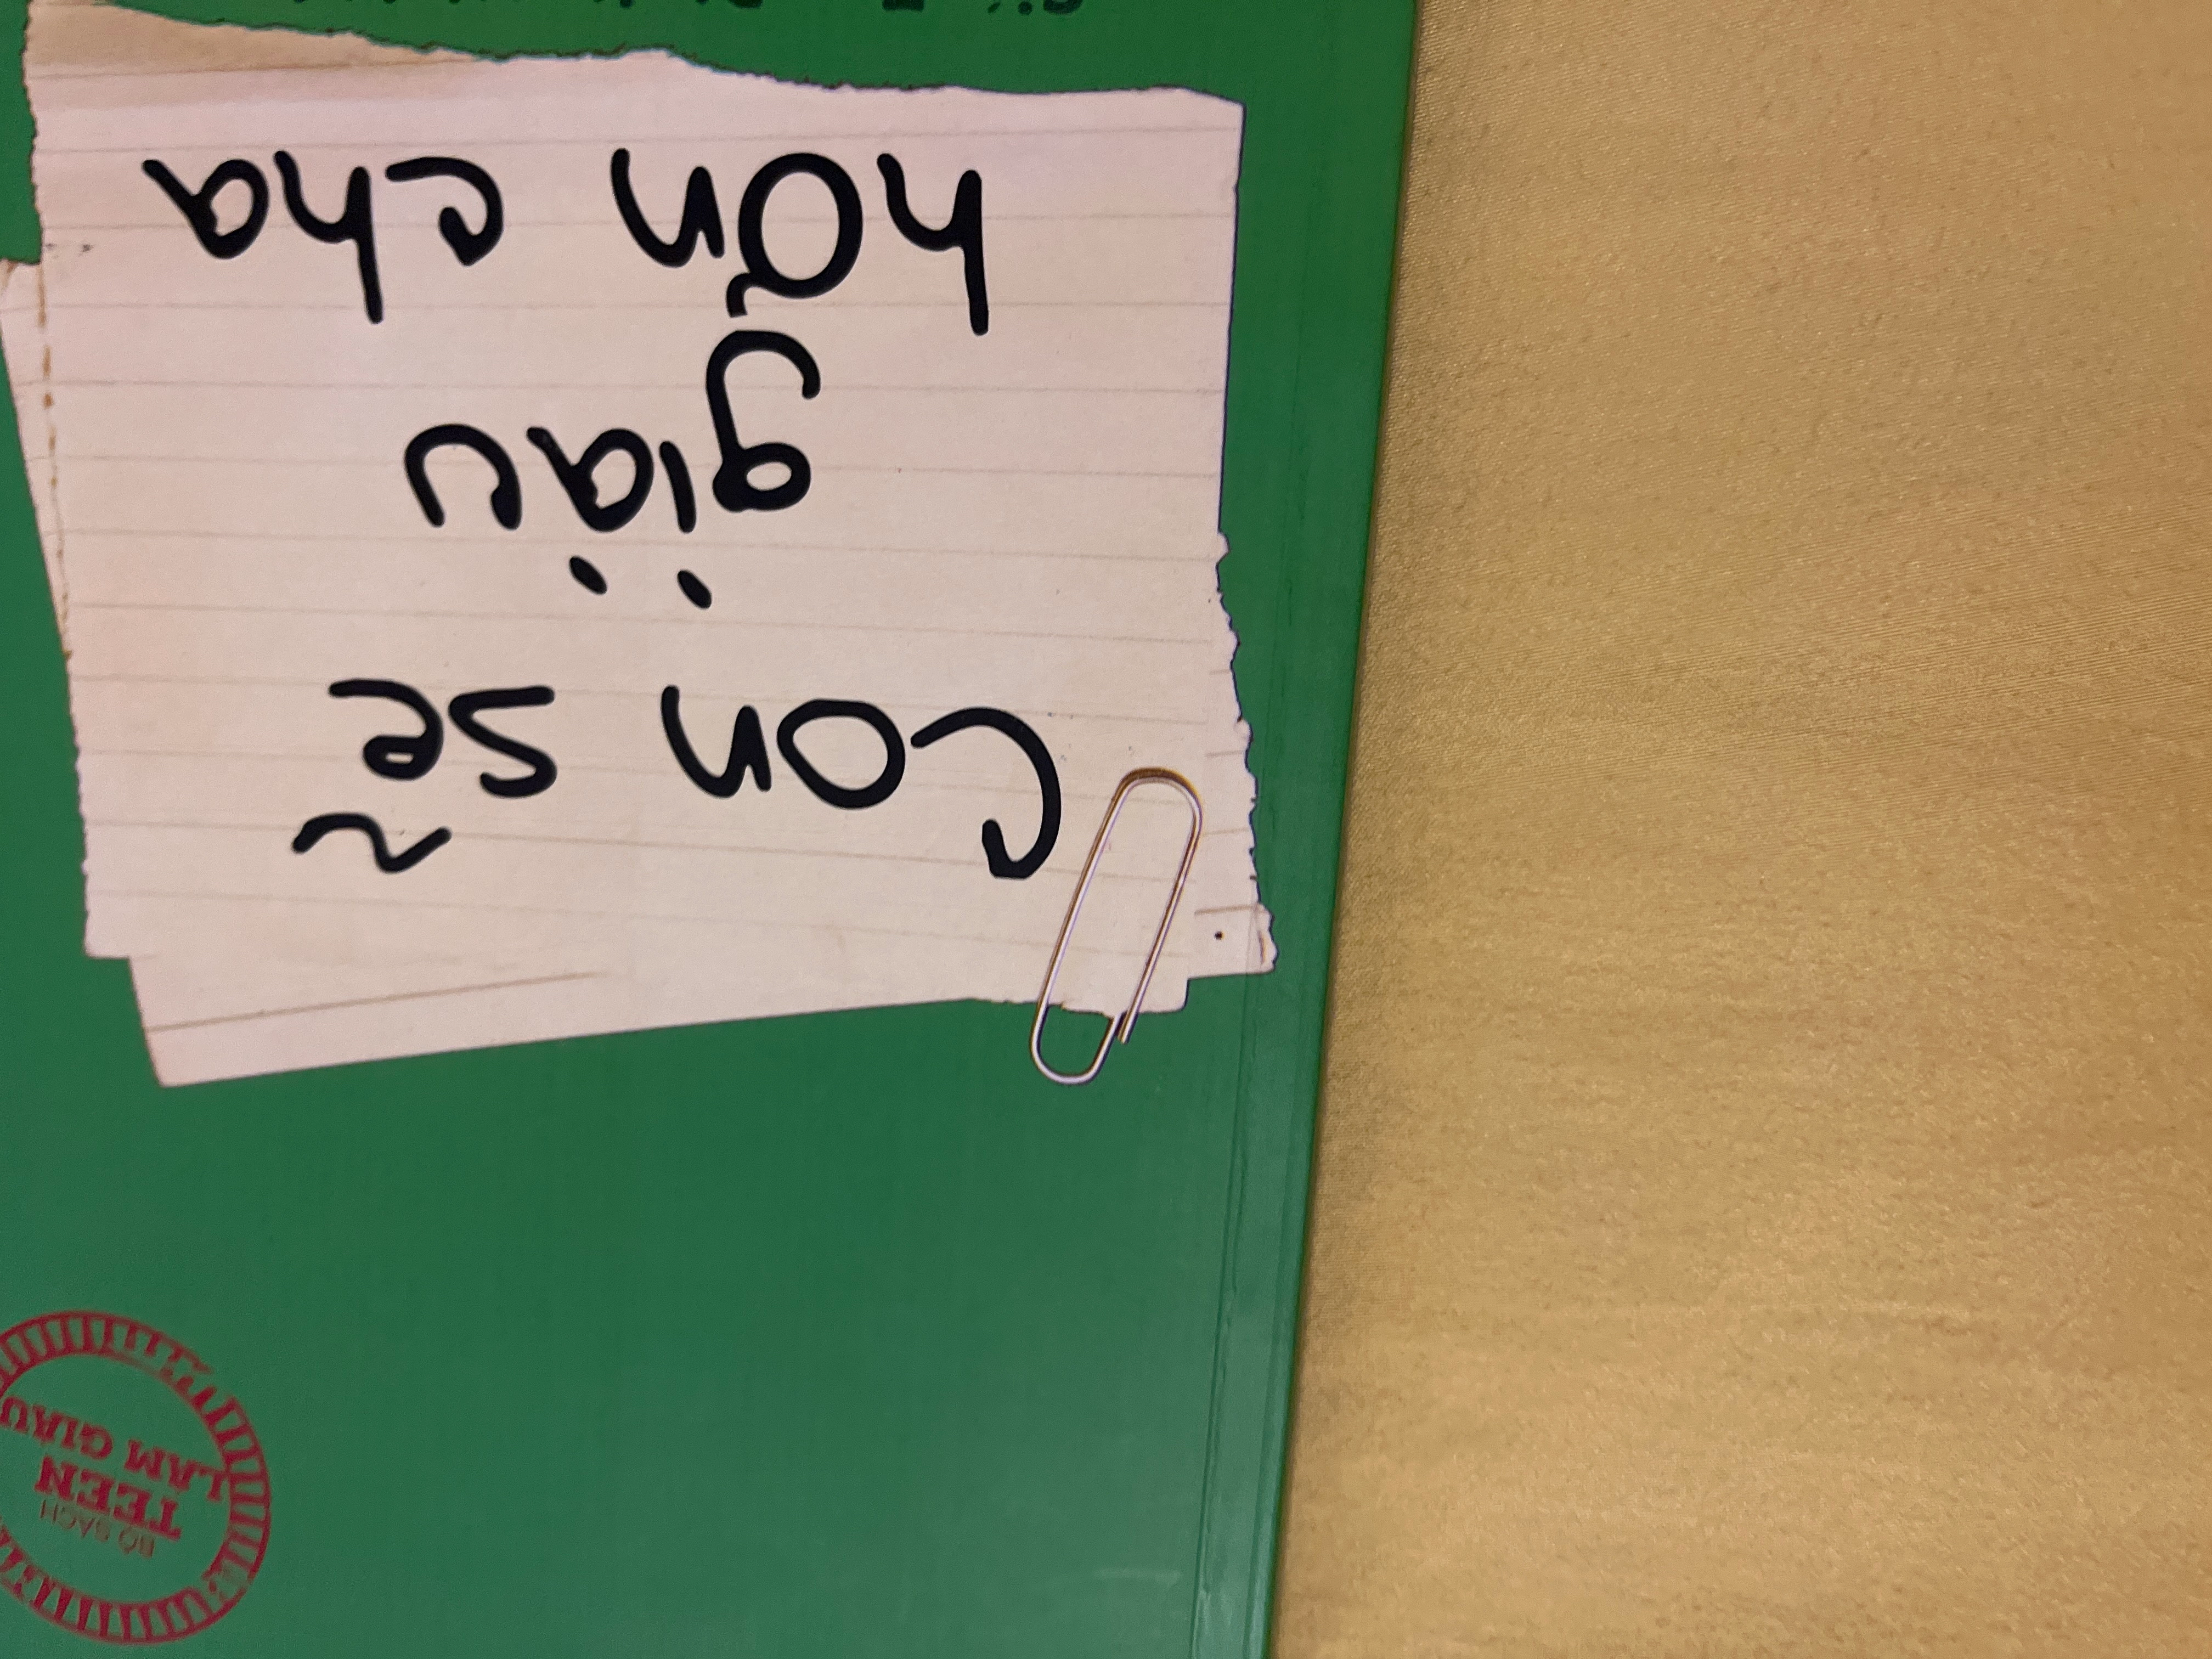 BỘ SÁCH
TEEN
LÀM GIÀU
Con sẽ
giàu
hơn cha